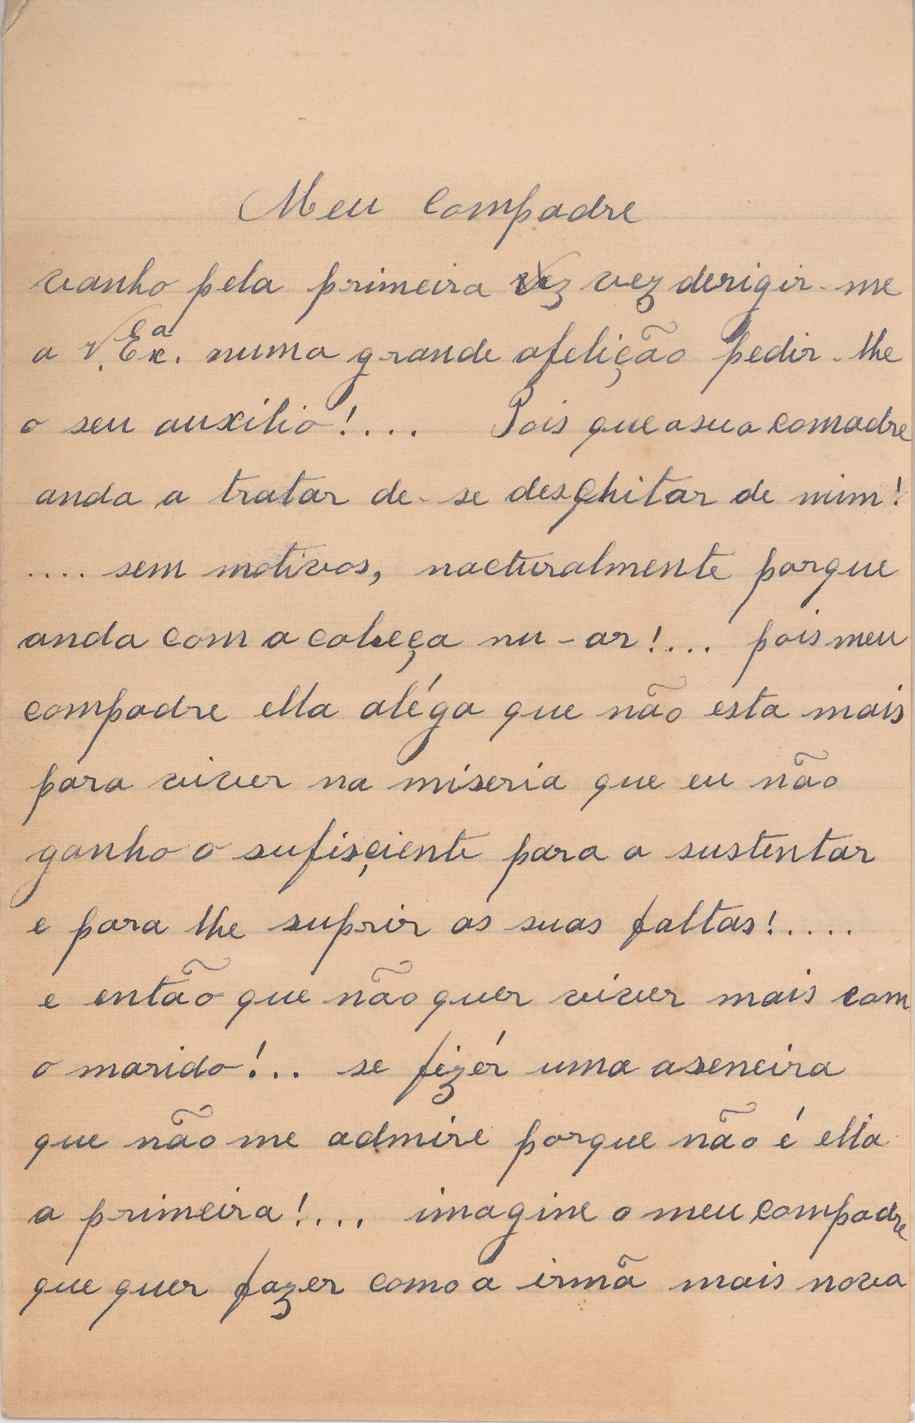 Meu compadre
vanho pela primeira vez derigir-me
a V. Exª. numa grande afelição pedir-lhe
o seu auxilio!.... Pois que a sua comadre
anda a tratar de-se desquitar de mim!
.... sem motivos, nacturalmente porque
anda com a cabeça nu-ar!... pois meu
compadre ella aléga que não esta mais
para viver na miseria que eu não
ganho o sufisçiente para a sustentar
e para lhe suprir as suas faltas!....
e então que não quer viver mais com
o marido!.. se fizér uma aseneira
que não me admire porque não é ella
a primeira!.... imagine o meu compadre
que quer fazer como a irmã mais nova